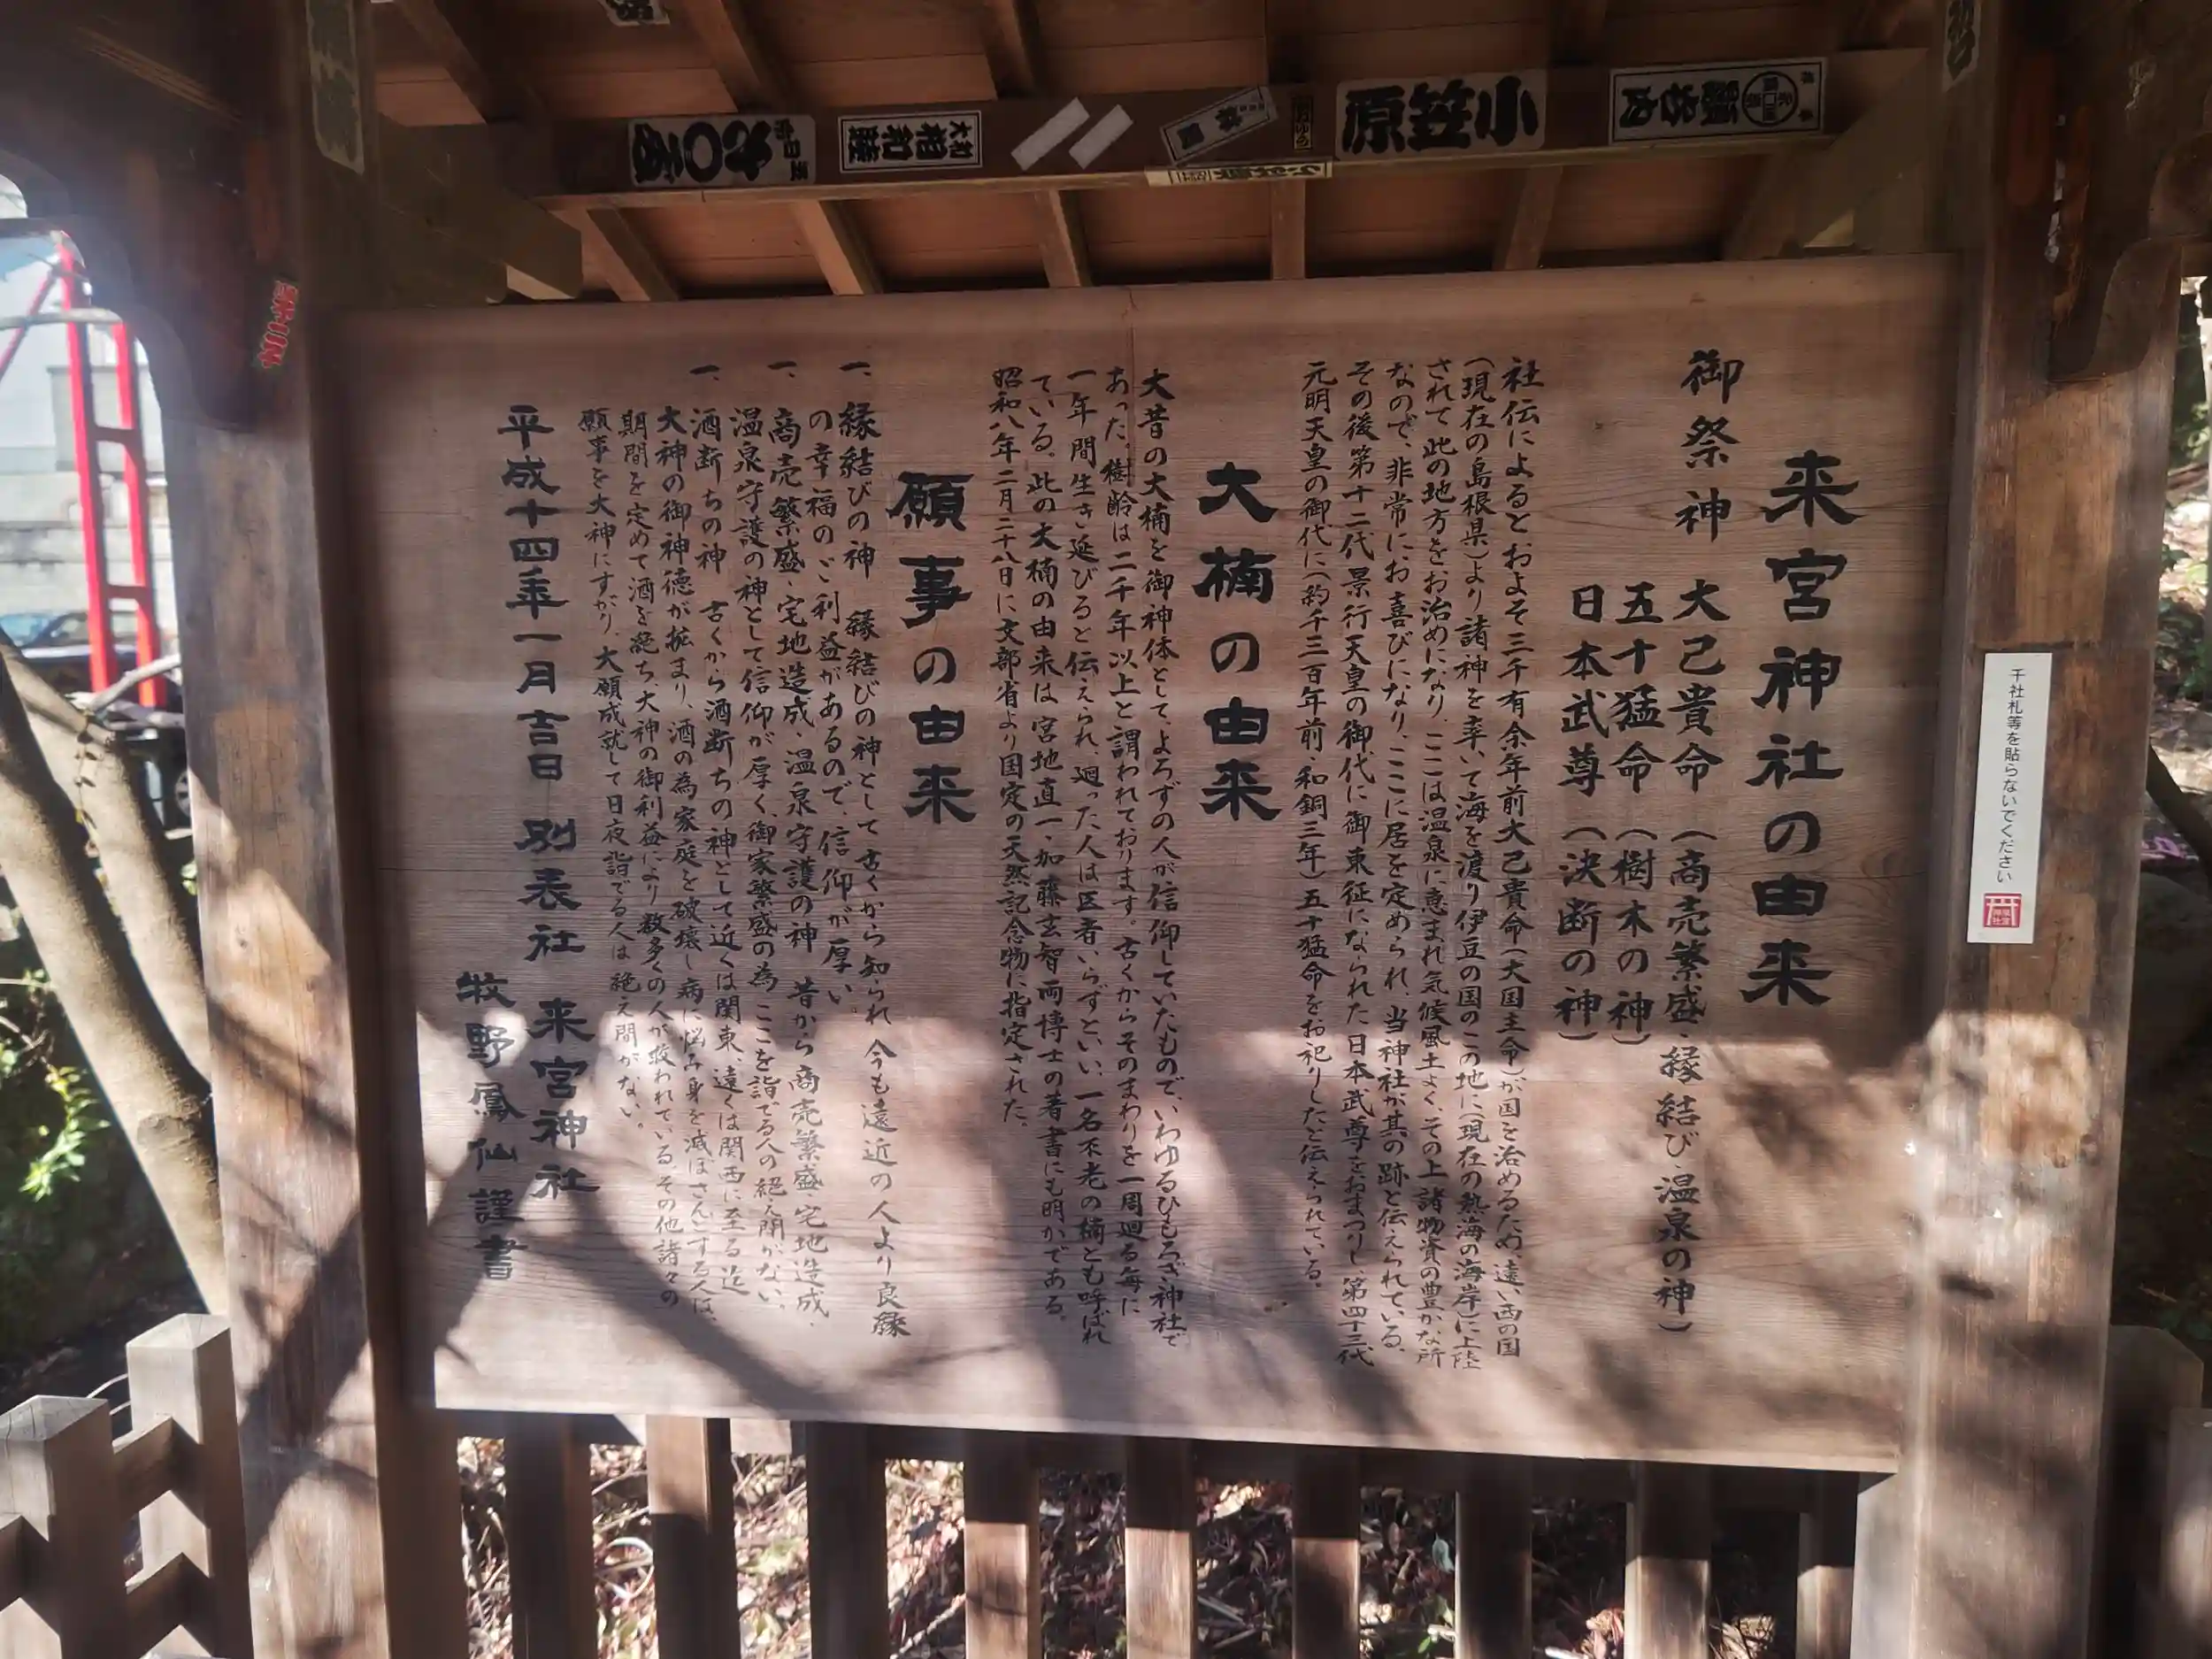 来宮神社の由来
御祭神 大己貴命（商売繁盛・縁結び・温泉の神）
五十猛命（樹木の神）
日本武尊（決断の神）
社伝によるとおよそ三千有余年前大己貴命（大国主命）が国を治めるため、遠い西の国
（現在の島根県）より諸神を率いて海を渡り伊豆の国のこの地に（現在の熱海の海岸）に上陸
されて此の地方をお治めになり、ここは温泉に恵まれ気候風土よく、その上諸物資の豊かな所
なので、非常にお喜びになり、ここに居を定められ、当神社が其の跡と伝えられている。
その後第十二代景行天皇の御代に御東征になられた日本武尊をおまつりし、第四十三代
元明天皇の御代に（約千三百年前・和銅三年）五十猛命をお祀りしたと伝えられている。
大楠の由来
大昔の大楠を御神体として、よろずの人が信仰していたもので、いわゆるひもろぎ神社で
あった。樹齢は二千年以上と謂われております。古くからそのまわりを一周廻る毎に
一年間生き延びると伝えられ、廻った人は医者いらずといい、一名不老の楠とも呼ばれ
ている。此の大楠の由来は宮地直一、加藤玄智両博士の著書にも明かである。
昭和八年二月二十八日に文部省より国定の天然記念物に指定された。
願事の由来
一、縁結びの神 縁結びの神として古くから知られ 今も遠近の人より良縁
の幸福のご利益があるので、信仰が厚い。
一、商売繁盛・宅地造成・温泉守護の神 昔から商売繁盛・宅地造成、
温泉守護の神として信仰が厚く、御家繁盛の為ここを詣でる人の絶え間がない。
一、酒断ちの神 古くから酒断ちの神として近くは関東、遠くは関西に至る迄
大神の御神徳が拡まり、酒の為家庭を破壊し病に悩み身を滅ぼさんとする人は、
期間を定めて酒を絶ち、大神の御利益により数多くの人が救われている。その他諸々の
願事を大神にすがり、大願成就して日夜詣でる人は絶え間がない。
平成十四年一月吉日 別表社 来宮神社
牧野鳳仙謹書
千社札等を貼らないでください
小笠原